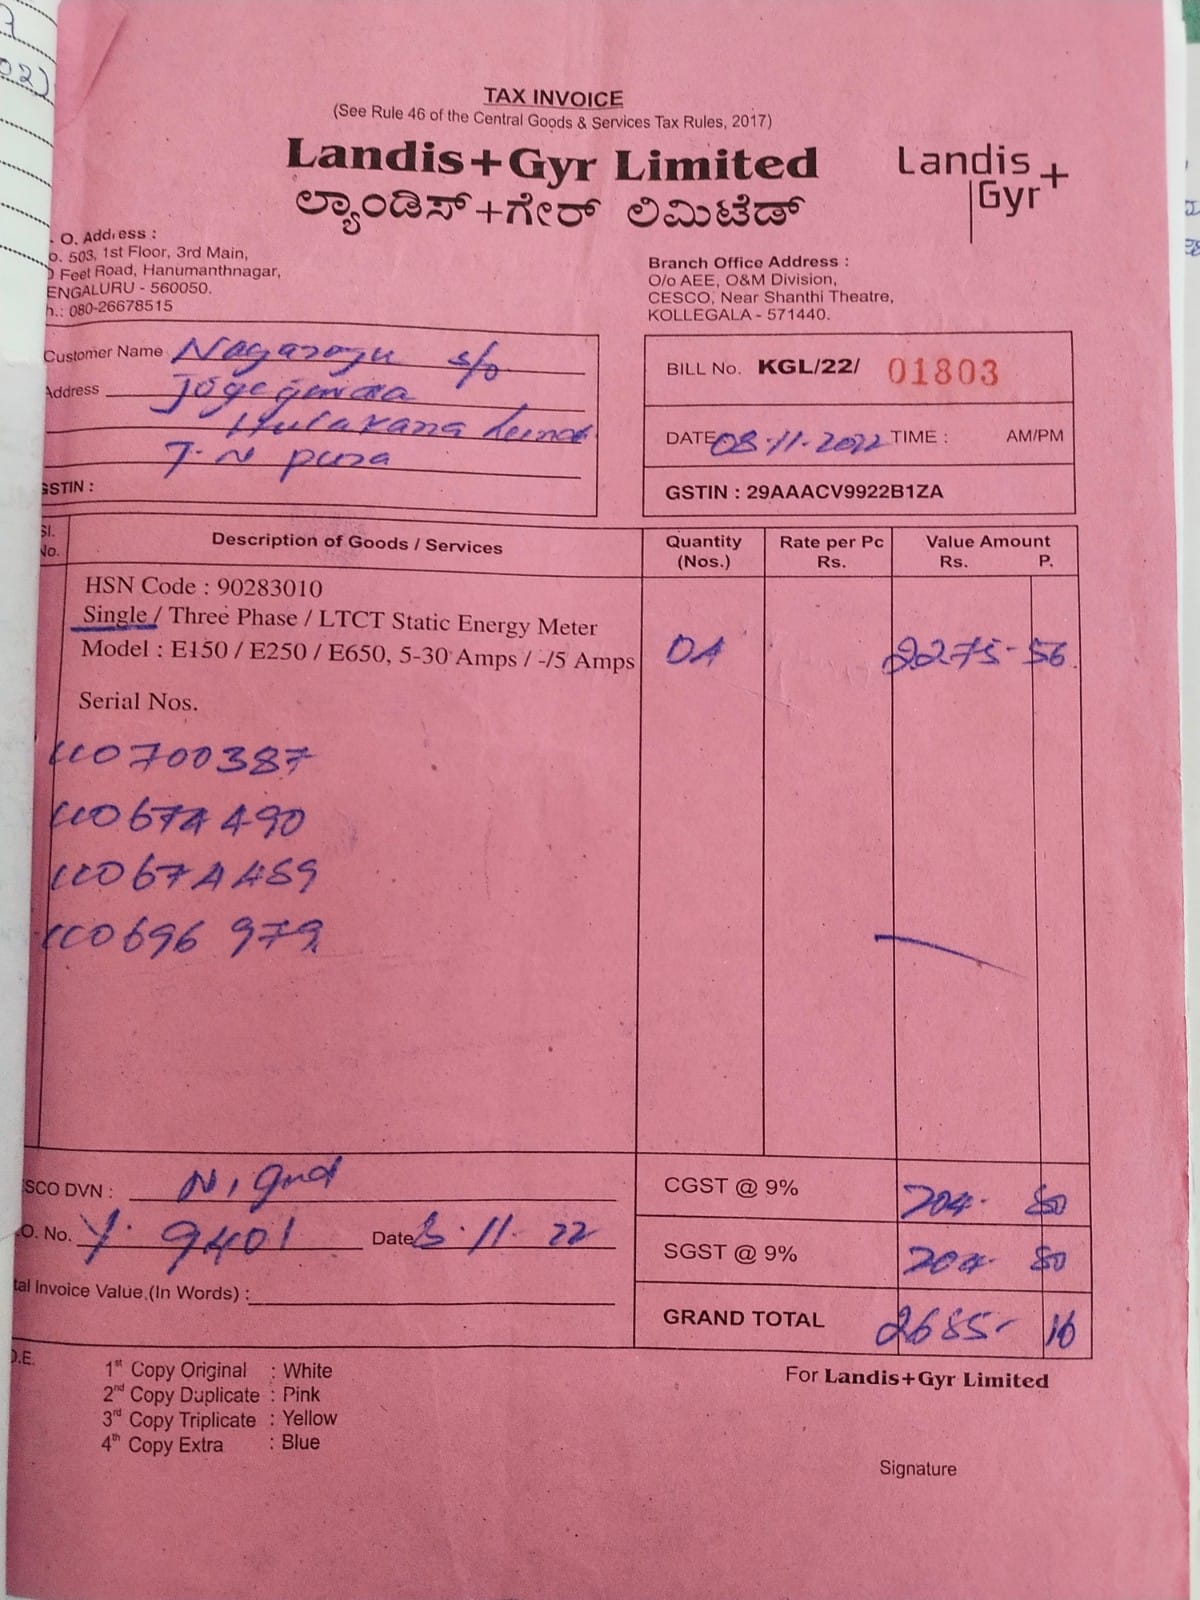 02)
TAX INVOICE
(See Rule 46 of the Central Goods & Services Tax Rules, 2017)
Landis+Gyr Limited
ಲ್ಯಾಂಡಿಸ್+ಗೇರ್ ಲಿಮಿಟೆಡ್
Landis
Gyr+
. O. Address :
o. 503, 1st Floor, 3rd Main,
0 Feet Road, Hanumanthnagar,
ENGALURU - 560050.
h.: 080-26678515
Branch Office Address :
O/o AEE, O&M Division,
CESCO, Near Shanthi Theatre,
KOLLEGALA - 571440.
Customer Name Nagaraju s/o
Address
T. N pura
GSTIN :
BILL No. KGL/22/ 01803
DATE 08-11-2022 TIME : AM/PM
GSTIN : 29AAACV9922B1ZA
Sl. No. Description of Goods / Services Quantity (Nos.) Rate per Pc Rs. Value Amount Rs. P.
HSN Code : 90283010
Single / Three Phase / LTCT Static Energy Meter
Model : E150 / E250 / E650, 5-30 Amps / -/5 Amps 04 2275-56
Serial Nos.
110700387
110674490
110674459
110696979
SCO DVN :
CGST @ 9% 204- 80
.O. No. Y. 9401 Date 8-11-22
SGST @ 9% 204- 80
tal Invoice Value,(In Words) :
GRAND TOTAL 2685- 16
O.E.
1st Copy Original : White
2nd Copy Duplicate : Pink
3rd Copy Triplicate : Yellow
4th Copy Extra : Blue
For Landis+Gyr Limited
Signature